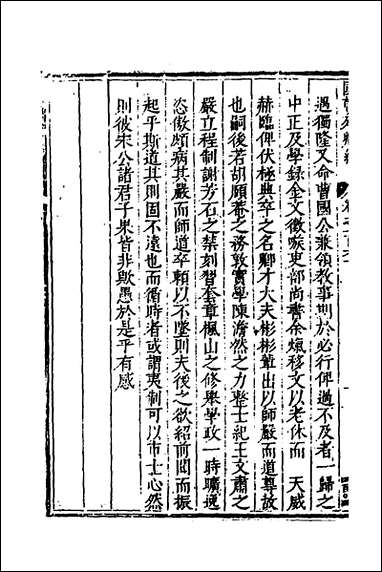 遇獨隆又命曹國公兼領教事期於必行俾過不及者一歸之
中正及學錄金文徵嗾吏部尚書余熂移文以老休而　天威
赫臨俾伏極典卒之名卿才大夫彬彬輩出以師嚴而道尊故
也嗣後若胡頤菴之務敦實學陳澹然之力整士紀王文肅之
嚴立程制謝方石之禁刻習套章楓山之修舉學政一時曠逸
恣儌頗病其嚴而師道卒賴以不墜則夫後之欲紹前聞而振
起乎斯道其則固不遠也而衡時者或謂夷制可以市士心然
則彼宋公諸君子果皆非歟愚於是乎有感